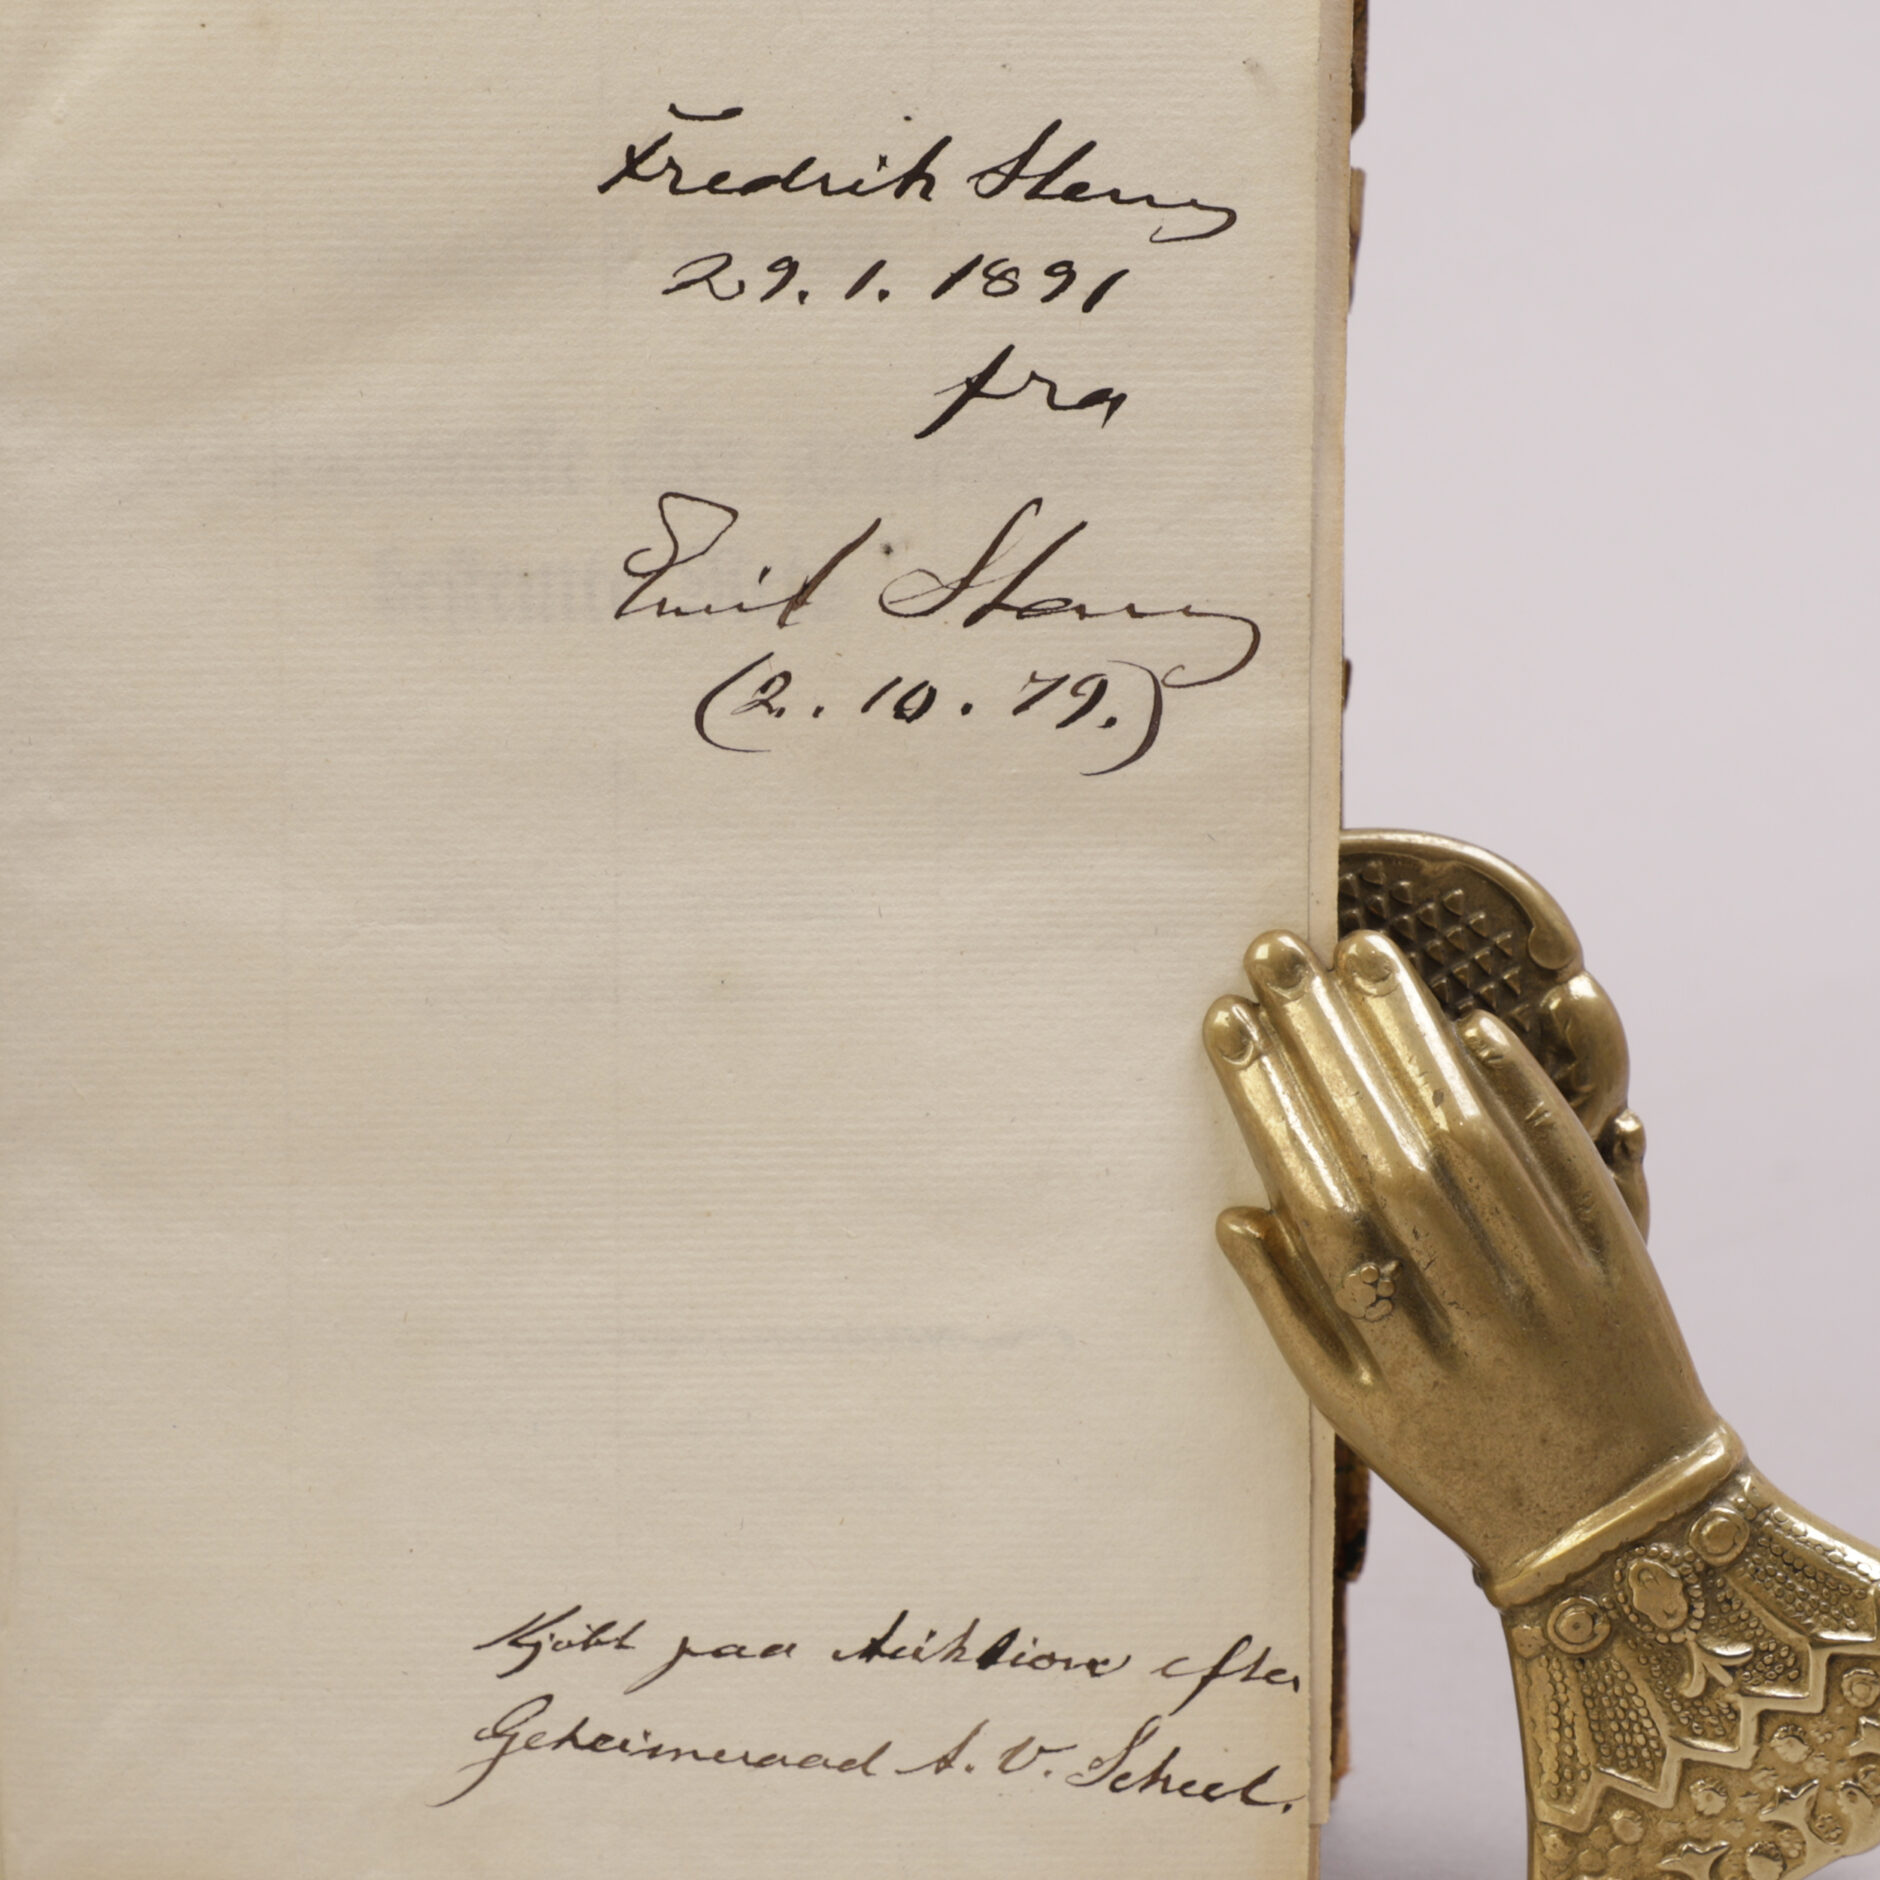 Fredrik Stang
29. 1. 1891
fra
Emil Stang
(2. 10. 79.)
Kjöbt paa Auktion efter
Geheimeraad A. V. Scheel.